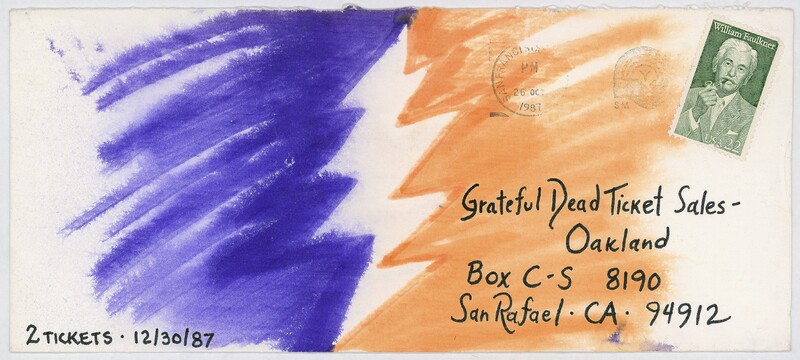 William Faulkner
USA 22
SAN FRANCISCO
PM
26 OCT
1987
Grateful Dead Ticket Sales-
Oakland
Box C-S 8190
San Rafael · CA · 94912
2 TICKETS · 12/30/87